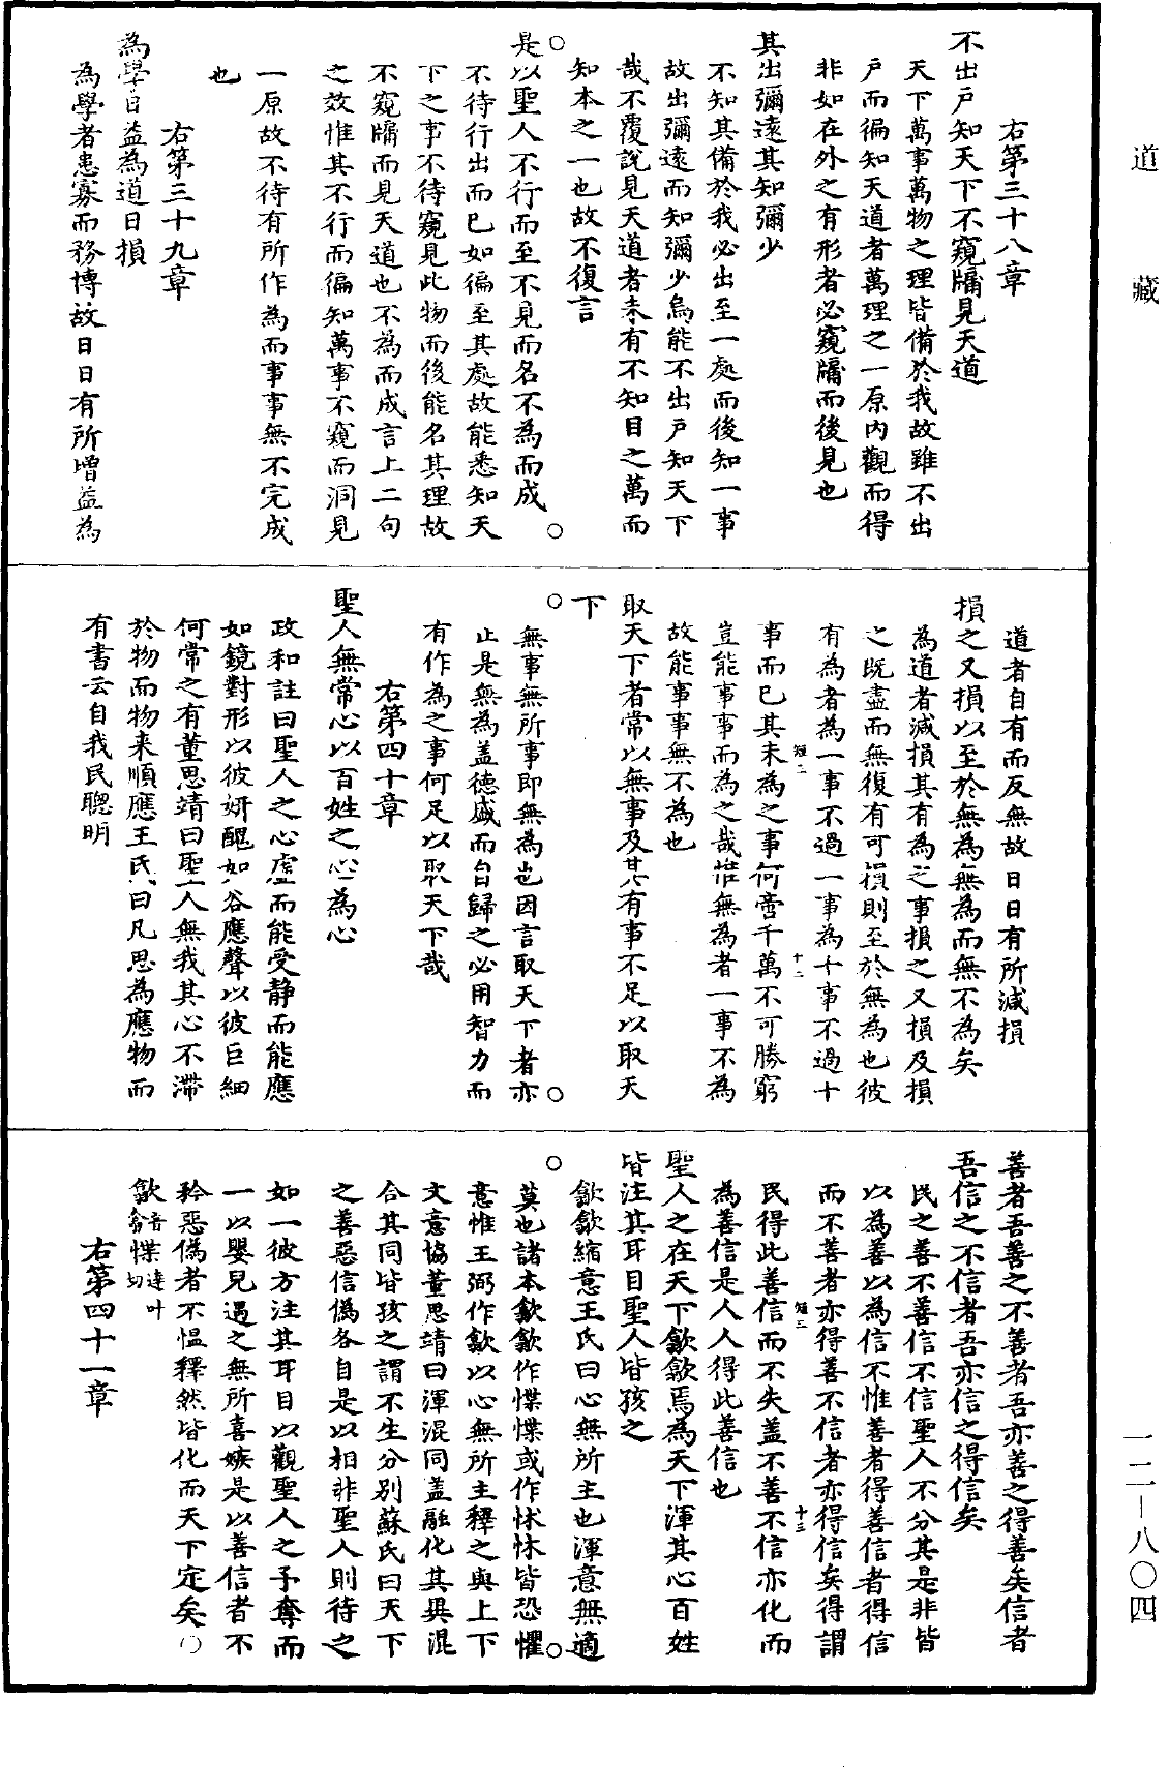 道藏
右第三十八章
不出戶知天下不窺牖見天道
天下萬事萬物之理皆備於我故雖不出
戶而徧知天道者萬理之一原内觀而得
非如在外之有形者必窺牖而後見也
其出彌遠其知彌少
不知其備於我必出至一處而後知一事
故出彌遠而知彌少烏能不出戶知天下
哉不覆說見天道者未有不知目之萬而
知本之一也故不復言
○是以聖人不行而至不見而名不為而成○
不待行出而已如徧至其處故能悉知天
下之事不待窺見此物而後能名其理故
不窺牖而見天道也不為而成言上二句
之效惟其不行而徧知萬事不窺而洞見
一原故不待有所作為而事事無不完成
也
右第三十九章
為學日益為道日損
為學者患寡而務博故日日有所增益為
道者自有而反無故日日有所減損
損之又損以至於無為無為而無不為矣
為道者減損其有為之事損之又損及損
之既盡而無復有可損則至於無為也彼
有為者為一事不過一事為十事不過十
事而已其未為之事何啻千萬不可勝窮
短二
十二
豈能事事而為之哉惟無為者一事不為
故能事事無不為也
取天下者常以無事及其有事不足以取天
下
○無事無所事即無為也因言取天下者亦○
止是無為蓋德盛而自歸之必用智力而
有作為之事何足以取天下哉
右第四十章
聖人無常心以百姓之心為心
政和註曰聖人之心虛而能受静而能應
如鏡對形以彼妍醜如谷應聲以彼巨細
何常之有董思靖曰聖人無我其心不滯
於物而物来順應王氏曰凡思為應物而
有書云自我民聰明
善者吾善之不善者吾亦善之得善矣信者
吾信之不信者吾亦信之得信矣
民之善不善信不信聖人不分其是非皆
以為善以為信不惟善者得善信者得信
而不善者亦得善不信者亦得信矣得謂
短三
十三
民得此善信而不失蓋不善不信亦化而
為善信是人人得此善信也
聖人之在天下歙歙焉為天下渾其心百姓
皆注其耳目聖人皆孩之
歙歙縮意王氏曰心無所主也渾意無適
○莫也諸本歙歙作惵惵或作怵怵皆恐懼○
意惟王弼作歙以心無所主釋之與上下
文意協董思靖曰渾混同蓋融化其異混
合其同皆孩之謂不生分別蘇氏曰天下
之善惡信偽各自是以相非聖人則待之
如一彼方注其耳目以觀聖人之予奪而
一以嬰兒遇之無所喜嫉是以善信者不
矜惡偽者不慍釋然皆化而天下定矣○
歙音翕惵達叶切
右第四十一章
一二—八〇四